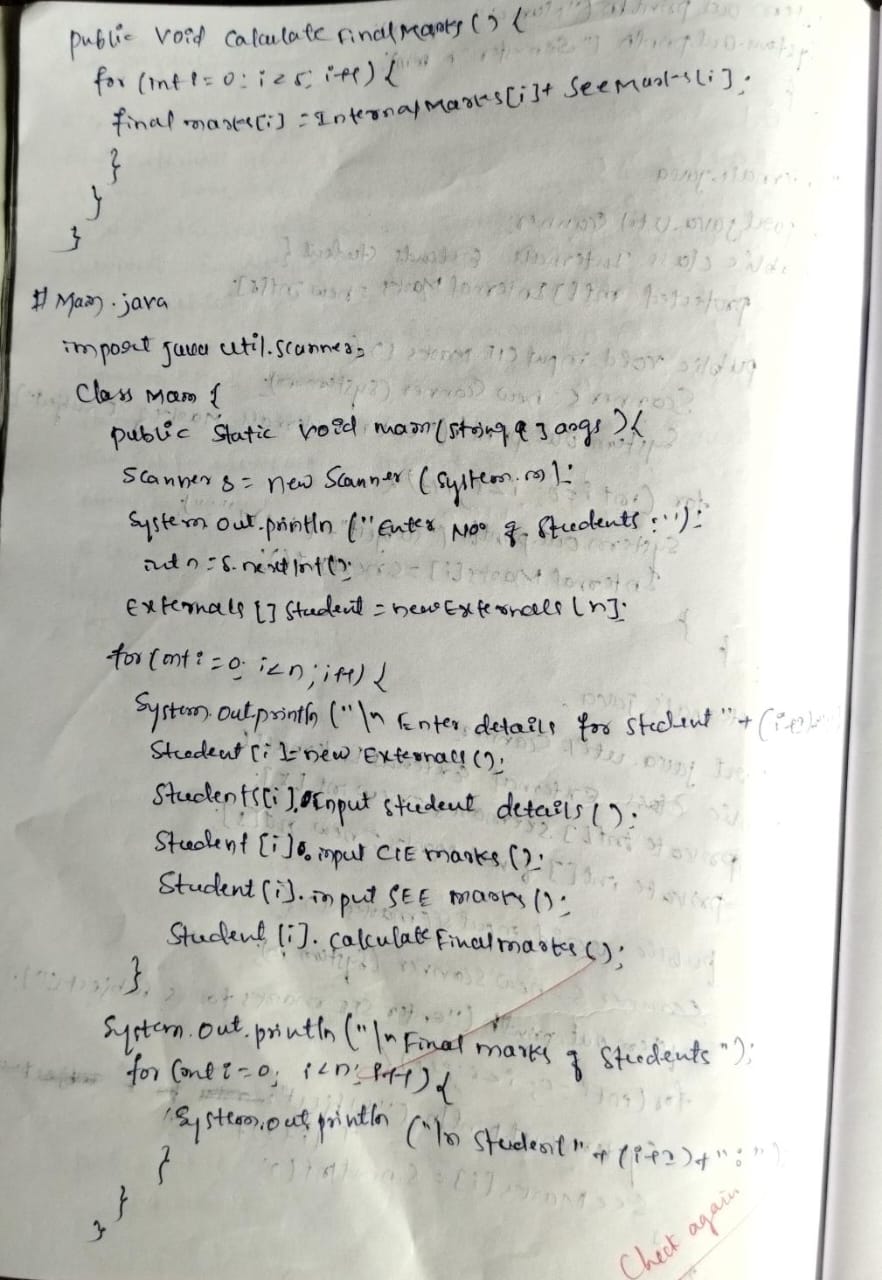 public void calculate Final Marks () {
for (int i = 0; i < 5; i++) {
final marks[i] = Internal Marks[i] + See Marks[i];
}
}
}
# Main.java
import java util.scanner;
Class Main {
public static void main (string [] args) {
Scanner s = new Scanner (System.in);
System out.println ("Enter No of Students:");
int n = s.nextInt();
Externals [] Student = new Externals [n];
for (int i = 0; i < n; i++) {
System.out.println ("\n Enter details for student" + (i+1)
Student [i] = new Externals ();
Students[i].Input student details ();
Student [i]. input CIE marks ();
Student [i]. input SEE marks ();
Student [i]. calculate Final marks ();
}
System.out.println ("\n Final marks of Students");
for (int i = 0; i < n; i++) {
System.out.println ("\n Student" + (i+1) + ":")
}
}
}
Check again